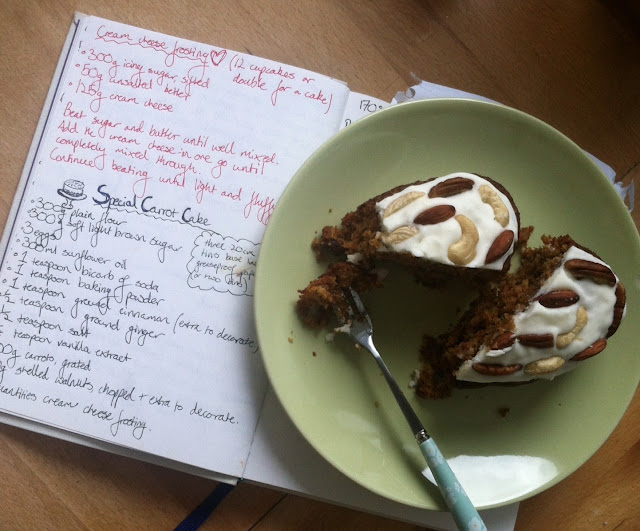 Cream cheese frosting (12 cupcakes or
double for a cake)
300g icing sugar, sifted
50g unsalted butter
125g cream cheese
Beat sugar and butter until well mixed.
Add the cream cheese in one go until
completely mixed through.
Continue beating until light and fluffy
Special Carrot Cake
300g plain flour
300g soft light brown sugar
3 eggs
300ml sunflower oil
1 teaspoon bicarb of soda
1 teaspoon baking powder
1 teaspoon ground cinnamon (extra to decorate)
½ teaspoon ground ginger
½ teaspoon salt
teaspoon vanilla extract
00g carrots grated
g shelled walnuts, chopped + extra to decorate.
quantities cream cheese frosting.
three 20
tins base
greaseproof
170g